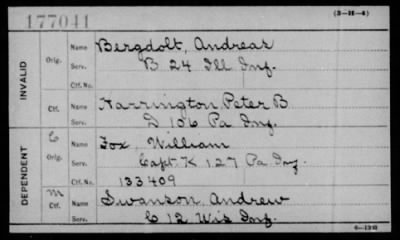 177041
(3-11-4)
INVALID
Orig. Name Bergdolt, Andreas
Serv. B 24 Ill Inf.
Ctf. No.
Ctf. Name Harrington Peter B
Serv. D 106 Pa Inf.
DEPENDENT
C Orig. Name Fox, William
Serv. Capt. K 127 Pa Inf
Ctf. No. 133409
m Ctf. Name Swanson, Andrew
Serv. C 12 Wis Inf.